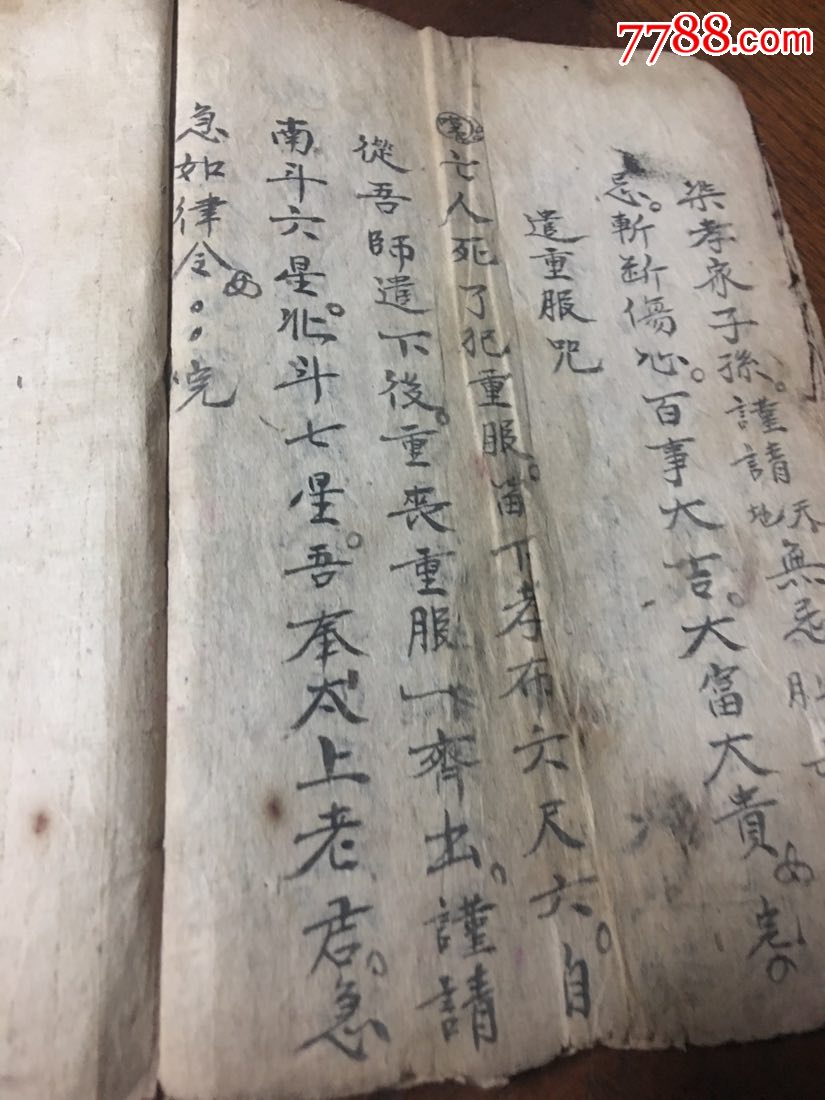 7788.com
柒孝家子孫。謹請天地無忌
忌。斬断傷心。百事大吉。大富大貴。完。
遣重服咒
亡人死了犯重服。畄下孝布六尺六。自
從吾師遣下後。重喪重服一齊出。謹請
南斗六星。北斗七星。吾奉太上老君。急
急如律令。。完